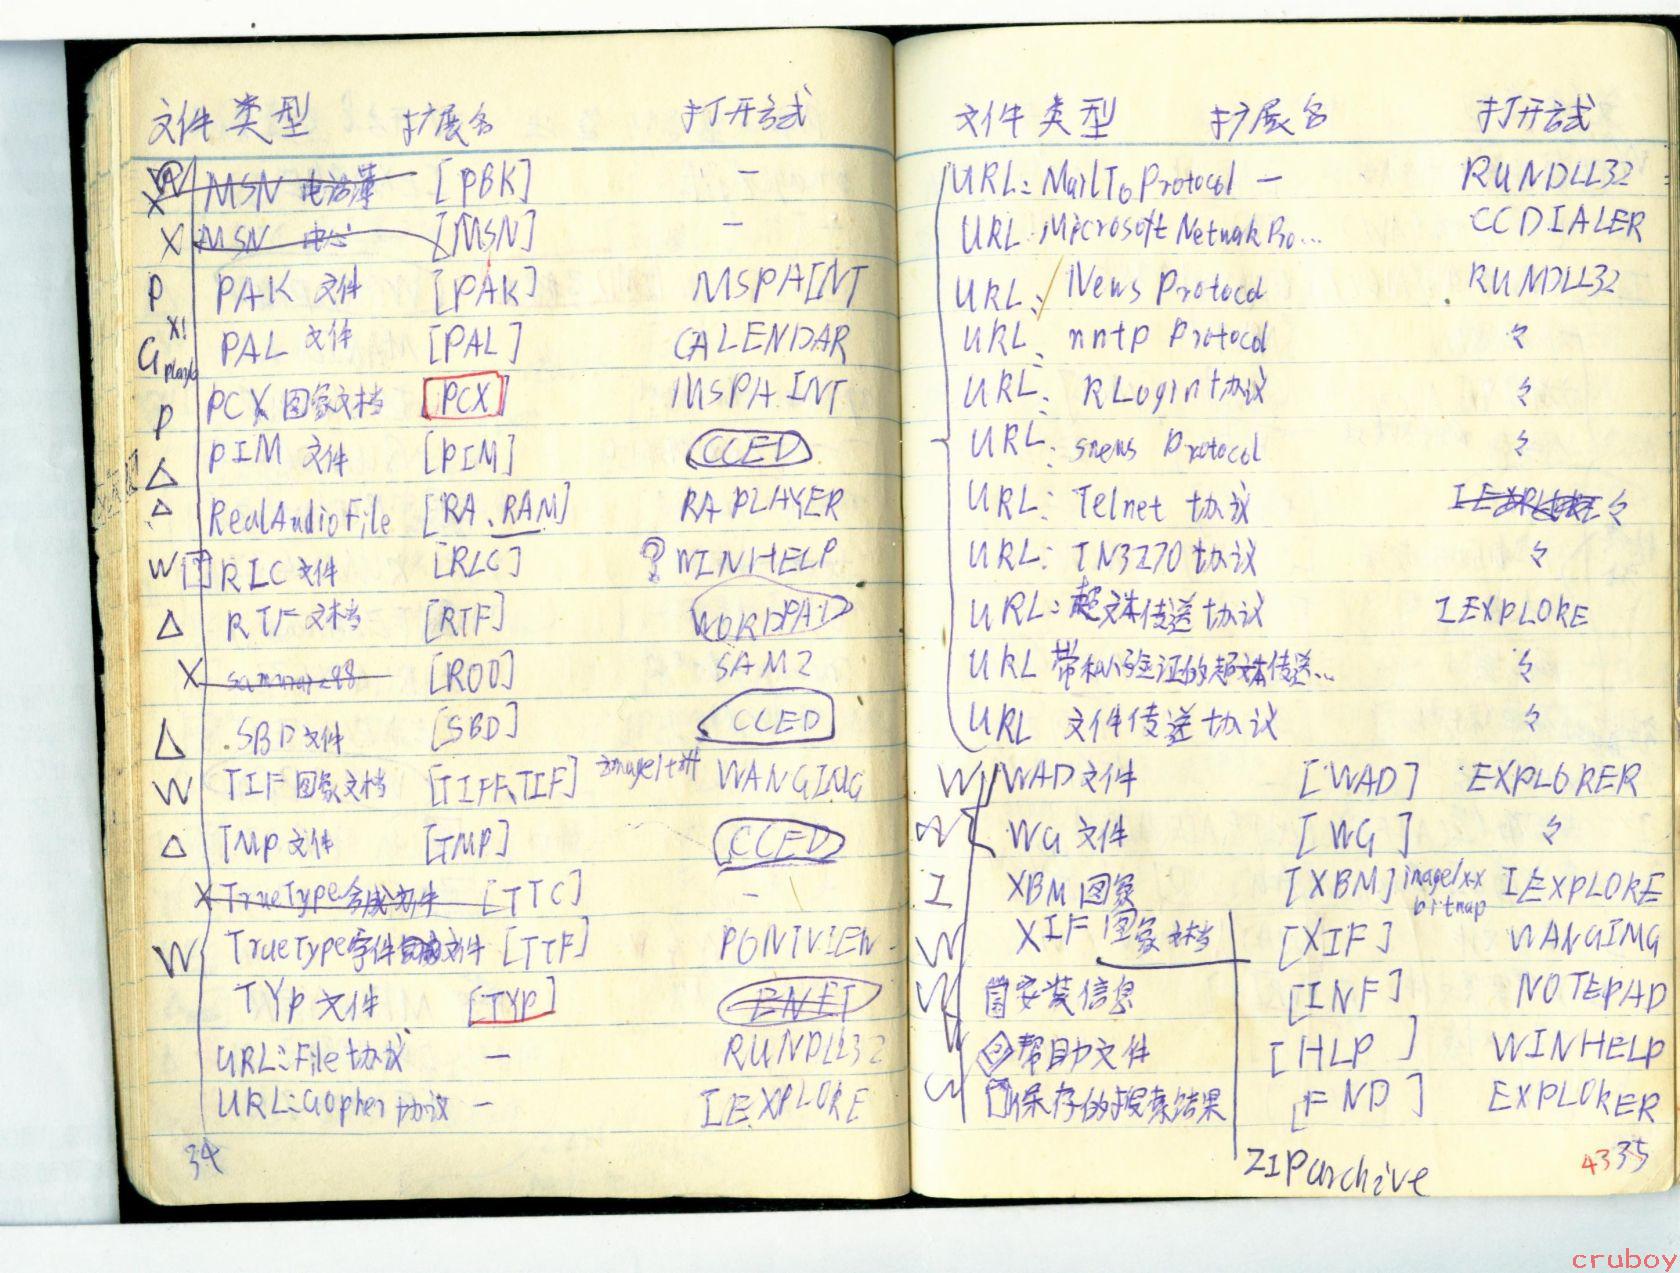 文件 类型 扩展名 打开方式
MSN 电话簿 [PBK] —
X MSN 中心 [MSN] —
P PAK 文件 [PAK] MSPAINT
G X! PAL 文件 [PAL] CALENDAR
P PCX 图象文档 [PCX] MSPAINT
△ PIM 文件 [PIM] CCED
△ RealAudioFile [RA、RAM] RAPLAYER
W [?] RLC 文件 [RLC] ? WINHELP
△ RTF 文档 [RTF] WORDPAD
X [R00] SAM2
△ SBD 文件 [SBD] CCED
W TIF 图象文档 [TIFF、TIF] image/tiff WANGIMG
△ TMP 文件 [TMP] CCED
X TrueType 合成文件 [TTC] —
W TrueType字体文件 [TTF] FONTVIEW
TYP 文件 [TYP] BNET
URL:File 协议 — RUNDLL32
URL:Gopher 协议 — IEXPLORE
34
文件 类型 扩展名 打开方式
URL: MailTo Protocol — RUNDLL32
URL: Microsoft Netwok Pro... CCDIALER
URL: News Protocol RUNDLL32
URL: nntp Protocol 々
URL: RLogin 协议 々
URL: snews Protocol 々
URL: Telnet 协议 IEXPLORE 々
URL: TN3270 协议 々
URL: 超文本传送协议 IEXPLORE
URL 带私人验证的超文本传送... 々
URL 文件传送协议 々
W WAD 文件 [WAD] EXPLORER
W WG 文件 [WG] 々
I XBM 图象 [XBM] image/x-x bitmap IEXPLORE
W XIF 图象文档 [XIF] WANGIMG
W 安装信息 [INF] NOTEPAD
W 帮助文件 [HLP] WINHELP
保存的搜索结果 [FND] EXPLORER
ZIParchive
43 35
cruboy